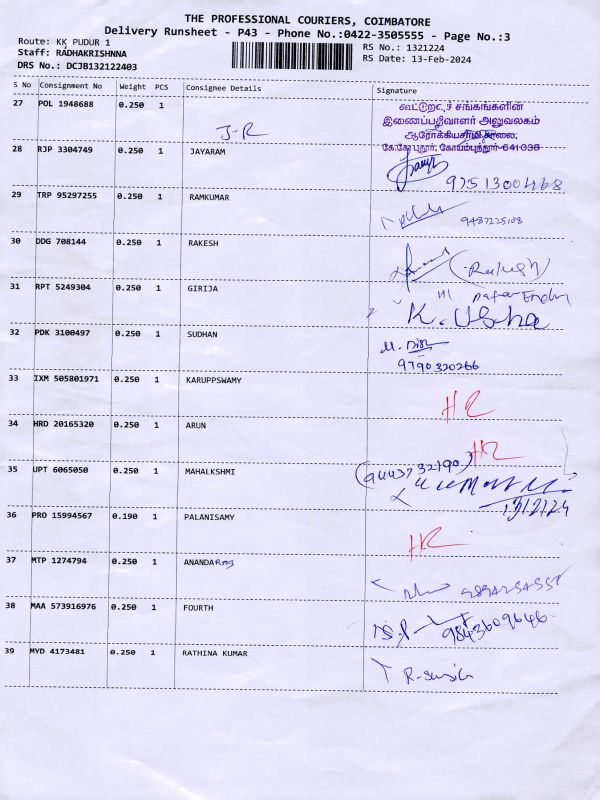 THE PROFESSIONAL COURIERS, COIMBATORE
Delivery Runsheet - P43 - Phone No.:0422-3505555 - Page No.:3
Route: KK PUDUR 1
RS No.: 1321224
Staff: RADHAKRISHNNA
RS Date: 13-Feb-2024
DRS No.: DCJB132122403
S No Consignment No Weight PCS Consignee Details Signature
27 POL 1948688 0.250 1
J-R
கூட்டுறவுச் சங்கங்களின்
இணைப்பதிவாளர் அலுவலகம்
கே.கே.புதூர், கோயம்புத்தூர்-641038
28 RJP 3304749 0.250 1 JAYARAM
9751300468
29 TRP 95297255 0.250 1 RAMKUMAR
9487225108
30 DDG 708144 0.250 1 RAKESH
(Rakesh)
31 RPT 5249304 0.250 1 GIRIJA
K. Usha
32 PDK 3100497 0.250 1 SUDHAN
9790320266
33 IXM 505801971 0.250 1 KARUPPSWAMY
HR
34 HRD 20165320 0.250 1 ARUN
HR
35 UPT 6065050 0.250 1 MAHALKSHMI
(9443732190)
13/2/24
36 PRO 15994567 0.190 1 PALANISAMY
HR
37 MTP 1274794 0.250 1 ANANDARaj
38 MAA 573916976 0.250 1 FOURTH
9843609646
39 MYD 4173481 0.250 1 RATHINA KUMAR